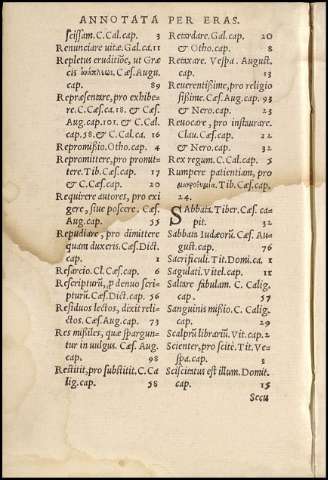 ANNOTATA PER ERAS.
scissam. C. Cal. cap. 3
Renunciare uitæ. Gal. ca. 11
Repletus eruditiõe, ut Græ
cis Cæs. Augu.
cap. 89
Repræsentare, pro exhibe
re. C. Cæs. ca. 18. & Cæs
Aug. cap. 101. & C. Cal.
cap. 58. & C. Cal. ca. 16
Repromissio. Otho. cap. 4
Repromittere, pro promit
tere. Tib. Cæs. cap. 17
& C. Cæs. cap. 20
Requirere autores, pro exi
gere, siue poscere. Cæs.
Aug. cap. 55
Repudiare, pro dimittere
quam duxeris. Cæs. Dict.
cap. 1
Resarcio. Cl. Cæs. cap. 6
Rescripturũ, p denuo scri
pturũ. Cæs. Dict. cap. 56
Residuos lectos, dixit relis
ctos. Cæs. Aug. cap. 73
Res missiles, quæ spargun
tur in uulgus. Cæs. Aug.
cap. 98
Restitit, pro substitit. C. Ca
lig. cap. 58
Retardare. Gal. cap. 20
& Otho. cap. 8
Retaxare. Vespa. August.
cap. 13
Reuerentissime, pro religio
sissime. Cæs. Aug. cap. 93
& Nero. cap. 23
Reuocare, pro instaurare.
Clau. Cæs. cap.
& Nero. cap. 32
Rex regum. C. Cal. cap. 5
Rumpere patientiam, pro
Tib. Cæs. cap.
24.
Sabbata. Tiber. Cæs. ca-
pit. 32
Sabbata Iudæorũ. Cæs. Au
gust. cap. 76
Sacrificuli. Tit. Domi. ca. 1
Sagulati. Vitel. cap. 11
Saltare fabulam. C. Calig.
cap. 57
Sanguinis missio. C. Calig.
cap. 29
Scalptũ librariũ. Vit. cap. 2
Scienter, pro scite. Tit. Ve-
spa. cap. 3
Sciscitatus est illum. Domit.
cap. 15
Secu